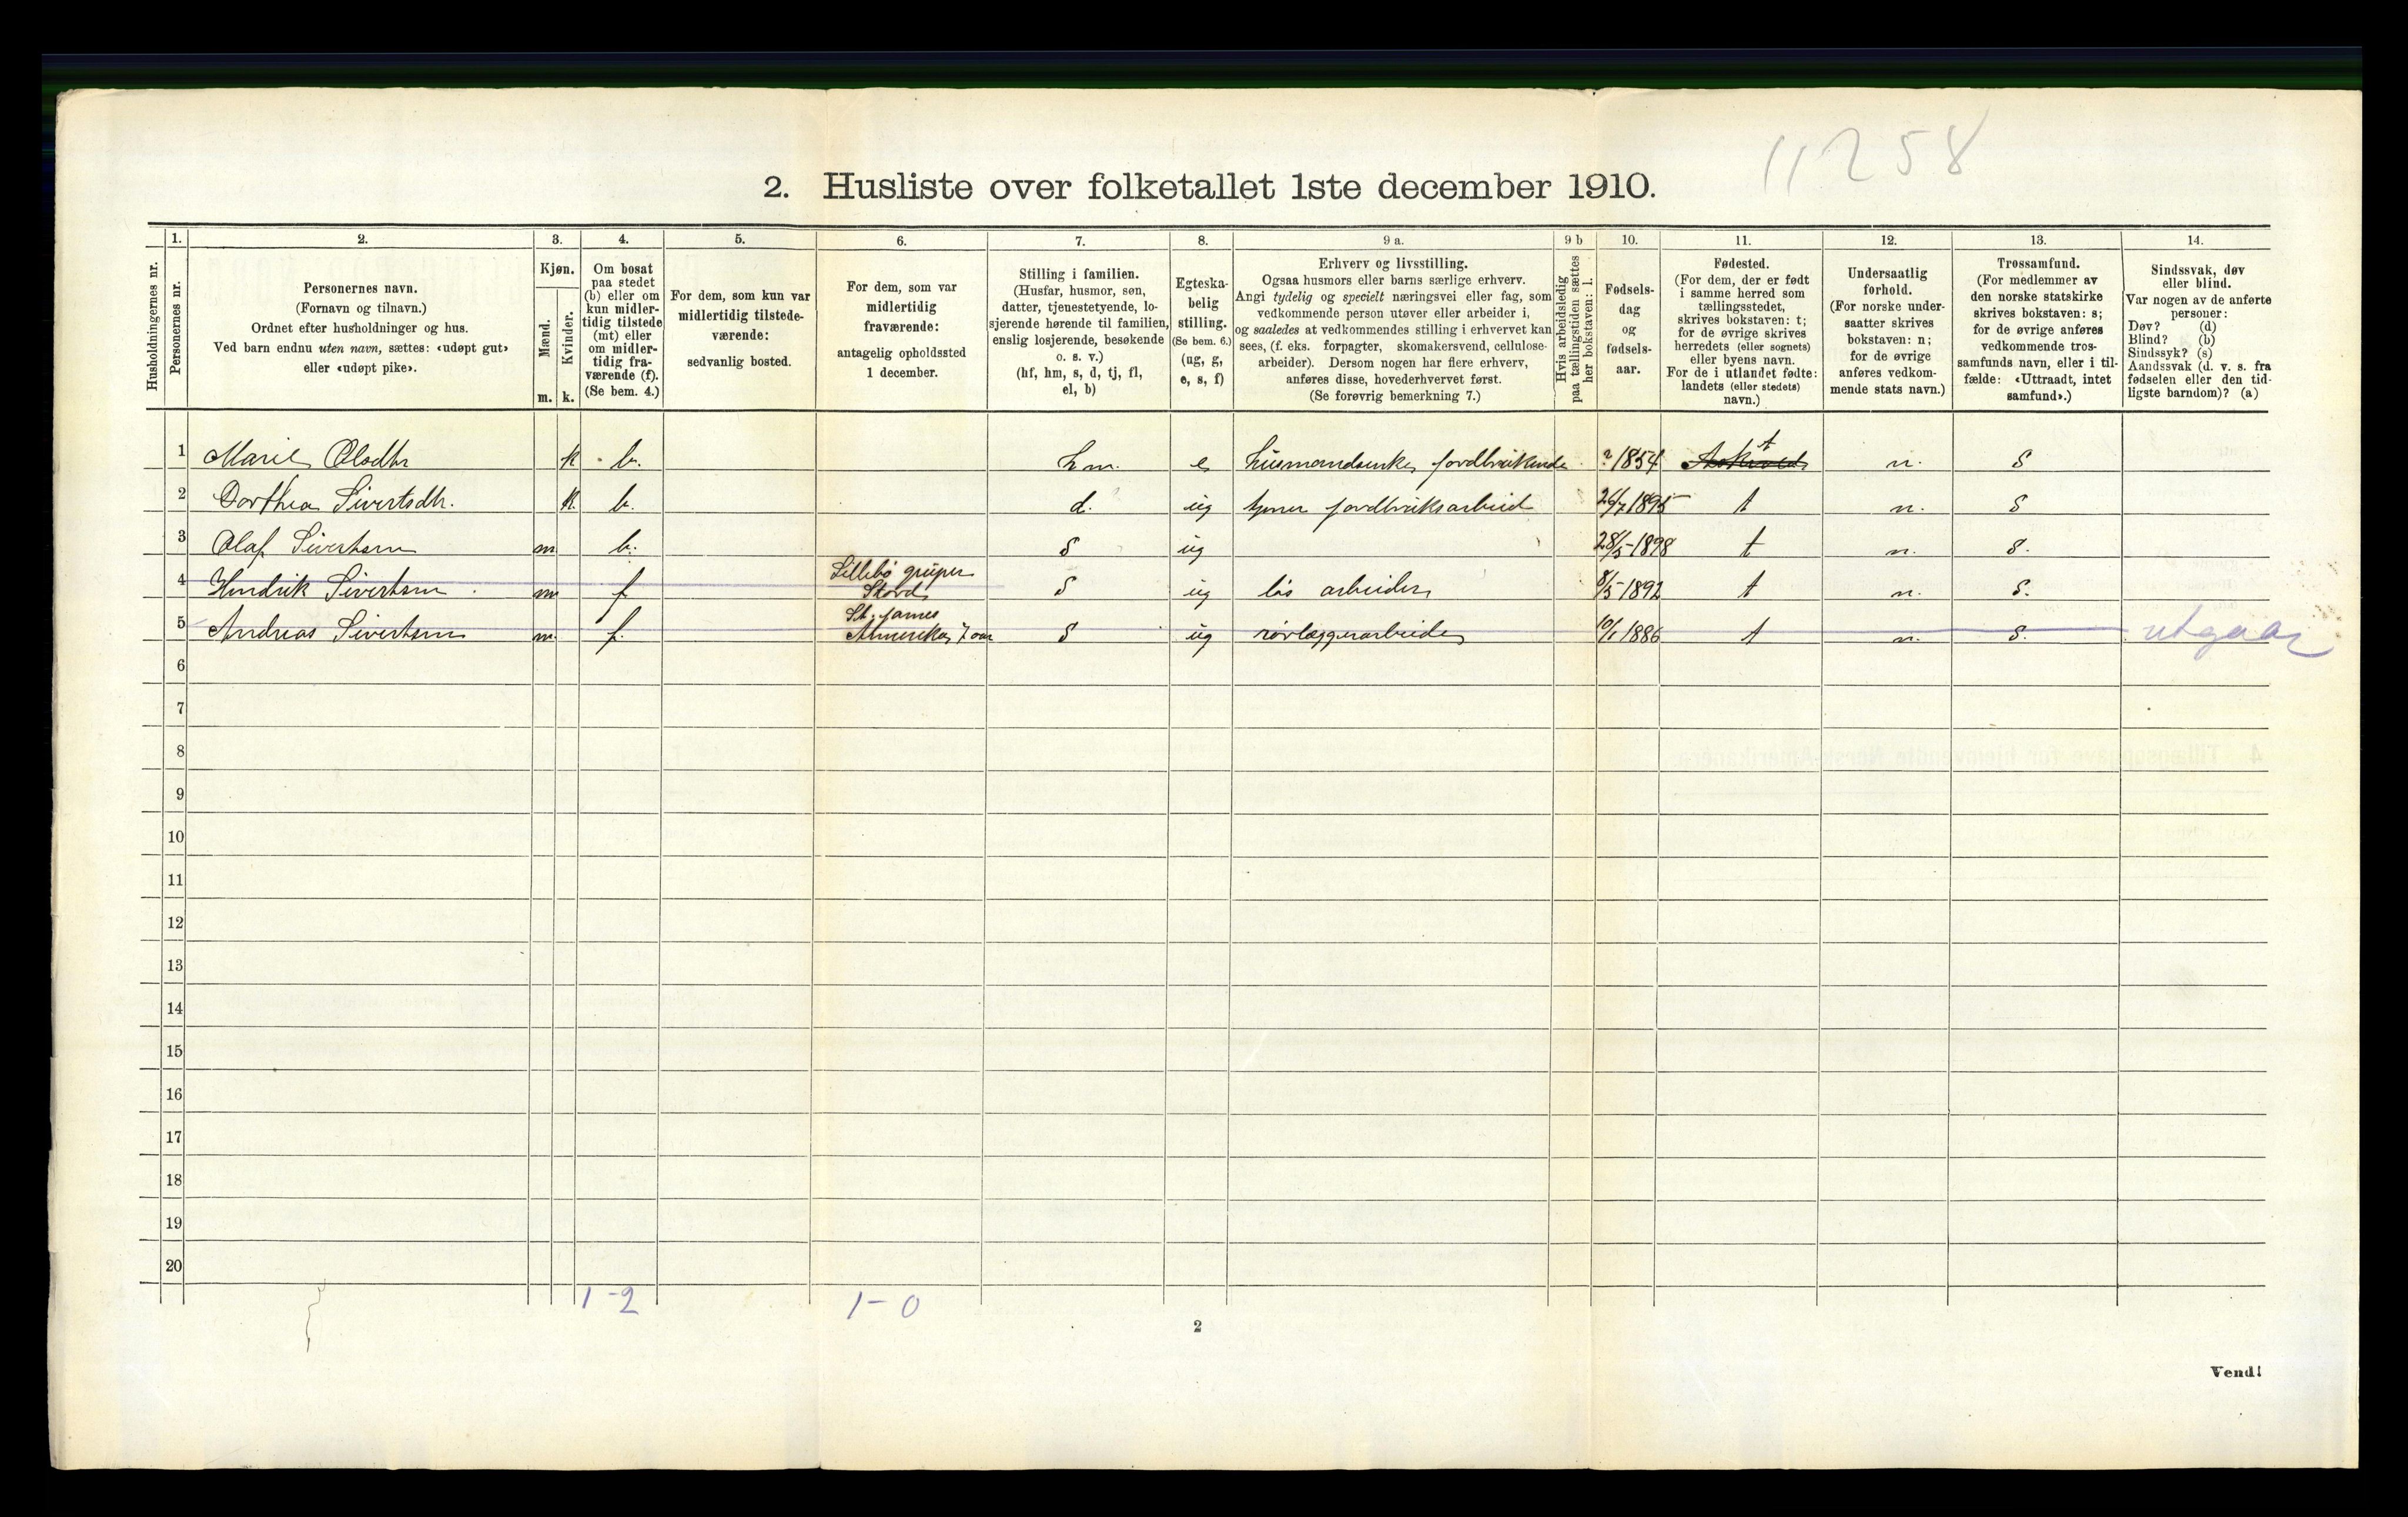 11258
2. Husliste over folketallet 1ste december 1910.
Husholdningernes nr.
1.
Personernes nr.
2.
Personernes navn.
(Fornavn og tilnavn.)
Ordnet efter husholdninger og hus.
Ved barn endnu uten navn, sættes: «udøpt gut»
eller «udøpt pike».
3.
Kjøn.
Mænd.
Kvinder.
m. k.
4.
Om bosat
paa stedet
(b) eller om
kun midler-
tidig tilstede
(mt) eller
om midler-
tidig fra-
værende (f).
(Se bem. 4.)
5.
For dem, som kun var
midlertidig tilstede-
værende:
sedvanlig bosted.
6.
For dem, som var
midlertidig
fraværende:
antagelig opholdssted
1 december.
7.
Stilling i familien.
(Husfar, husmor, søn,
datter, tjenestetyende, lo-
sjerende hørende til familien,
enslig losjerende, besøkende
o. s. v.)
(hf, hm, s, d, tj, fl,
el, b)
8.
Egteska-
belig
stilling.
(Se bem. 6.)
(ug, g,
e, s, f)
9 a.
Erhverv og livsstilling.
Ogsaa husmors eller barns særlige erhverv.
Angi tydelig og specielt næringsvei eller fag, som
vedkommende person utøver eller arbeider i,
og saaledes at vedkommendes stilling i erhvervet kan
sees, (f. eks. forpagter, skomakersvend, cellulose-
arbeider). Dersom nogen har flere erhverv,
anføres disse, hovederhvervet først.
(Se forøvrig bemerkning 7.)
9 b
Hvis arbeidsledig
paa tællingstiden sættes
her bokstaven: l.
10.
Fødsels-
dag
og
fødsels-
aar.
11.
Fødested.
(For dem, der er født
i samme herred som
tællingsstedet,
skrives bokstaven: t;
for de øvrige skrives
herredets (eller sognets)
eller byens navn.
For de i utlandet fødte:
landets (eller stedets)
navn.)
12.
Undersaatlig
forhold.
(For norske under-
saatter skrives
bokstaven: n;
for de øvrige
anføres vedkom-
mende stats navn.)
13.
Trossamfund.
(For medlemmer av
den norske statskirke
skrives bokstaven: s;
for de øvrige anføres
vedkommende tros-
samfunds navn, eller i til-
fælde: «Uttraadt, intet
samfund».)
14.
Sindssvak, døv
eller blind.
Var nogen av de anførte
personer:
Døv? (d)
Blind? (b)
Sindssyk? (s)
Aandssvak (d. v. s. fra
fødselen eller den tid-
ligste barndom)? (a)
1 Marie Olsdtr k b. hm. e husmandsenke jordbrukende ? 1854 t n. S
2 Dorthea Sivertsdtr. k. b. d. ug jordbruksarbeid 26/7 1895 t n. S
3 Olaf Sivertsen m b. S ug 28/5 1898 t n. S.
4 Hendrik Sivertsen m f Lillebö gruper
Stord S ug lös arbeider 8/5 1892 t n. S.
5 Andreas Sivertsen m. f. St. James
Amerika, 7 aar S ug rørlæggerarbeide 10/1 1886 t n. S. utgaar
6
7
8
9
10
11
12
13
14
15
16
17
18
19
20
1-2 1-0
2
Vend!